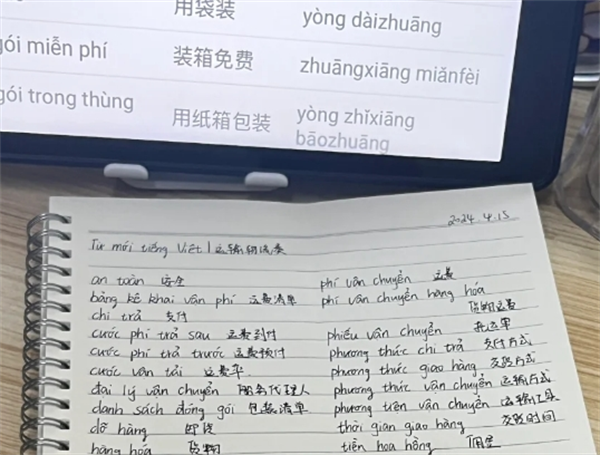 用袋装 yòng dàizhuāng
gói miễn phí 装箱免费 zhuāngxiāng miǎnfèi
gói trong thùng 用纸箱包装 yòng zhǐxiāng
bāozhuāng
2024.4.15
Từ mới tiếng Việt | 运输物流类
an toàn 安全
bảng kê khai vận phí 运费清单
chi trả 支付
cước phí trả sau 运费到付
cước phí trả trước 运费预付
cước vận tải 运费率
đại lý vận chuyển 服务代理人
danh sách đóng gói 包装清单
dỡ hàng 卸货
hàng hóa 货物
phí vận chuyển 运费
phí vận chuyển hàng hóa
货物运费
phiếu vận chuyển 托运单
phương thức chi trả 支付方式
phương thức giao hàng 交货方式
phương thức vận chuyển 运输方式
phương tiện vận chuyển 运输工具
thời gian giao hàng 交货时间
tiền hoa hồng 佣金